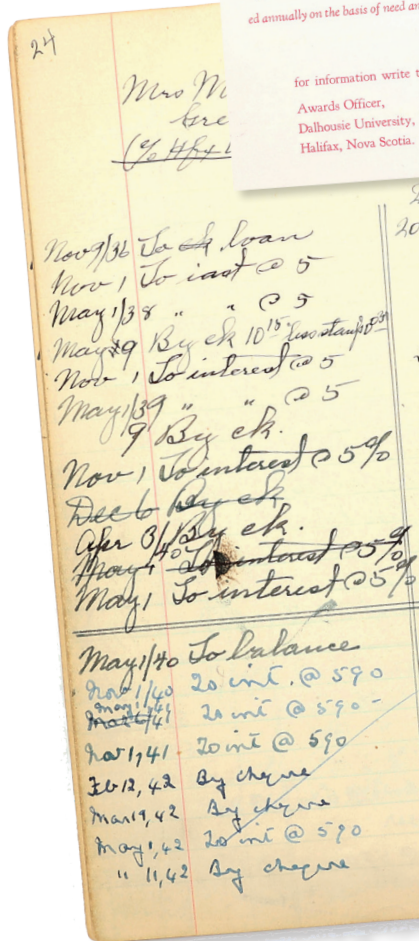 ed annually on the basis of need an
for information write t
Awards Officer,
Dalhousie University,
Halifax, Nova Scotia.
24
Mrs M
Gre
20
Nov 9/36 To ck loan
Nov 1 To inst @ 5
May 1/38 " " @ 5
May 9 By ck 10 15 less stamp
Nov 1 To interest @ 5
May 1/39 " " @ 5
9 By ck.
Nov 1 To interest @ 5%
Dec 6 By ck
Apr 3/40 By ck.
May 1 To interest @ 5%
May 1 To interest @ 5%
May 1/40 To balance
Nov 1/40 To int. @ 5%
May 1/41 To int @ 5% -
Nov 1, 41 To int @ 5%
Feb 12, 42 By cheque
Mar 19, 42 By cheque
May 1, 42 To int @ 5%
" 11, 42 By cheque